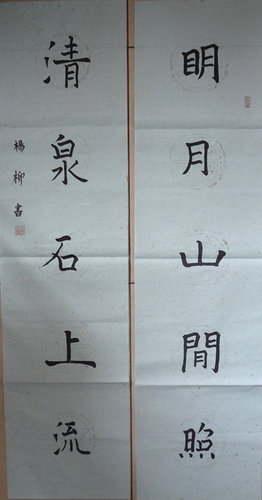 明月山間照
清泉石上流
楊柳書